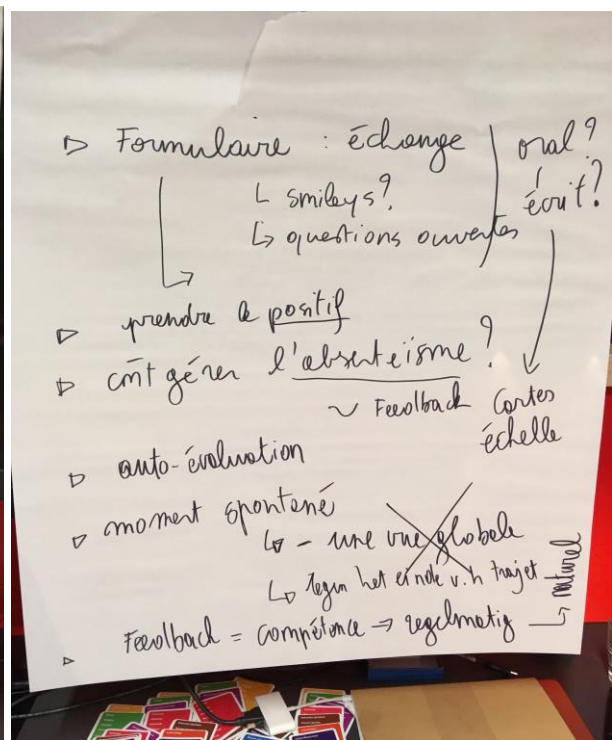 ▷ Formulaire : échange
↳ smileys?
↳ questions ouvertes
oral?
écrit?
▷ prendre le positif
▷ cmt gérer l'absentéisme?
~ Feedback
Cartes
échelle
▷ auto-évaluation
▷ moment spontané
↳ - une vue globale
↳ Tegen het einde v.h trajet
▷ Feedback = compétence → regelmatig → naturel